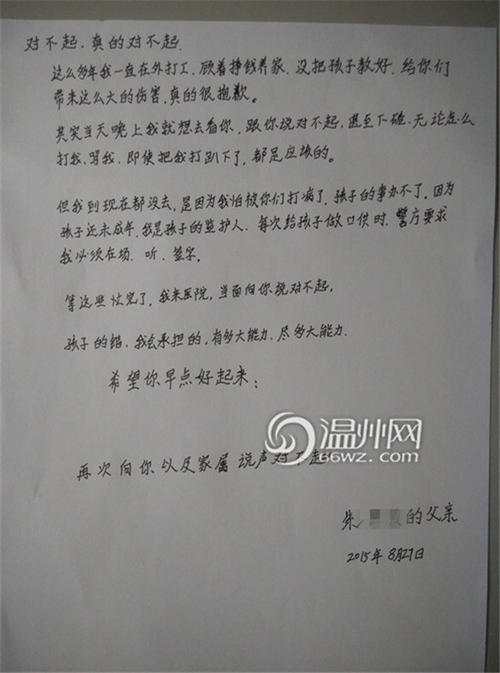 对不起,真的对不起.
这么多年我一直在外打工,顾着挣钱养家,没把孩子教好,给你们
带来这么大的伤害,真的很抱歉。
其实当天晚上我就想去看你,跟你说对不起,甚至下磕,无论怎么
打我,骂我,即使把我打趴下了,都是应该的。
但我到现在都没去,是因为我怕被你们打病了,孩子的事办不了,因为
孩子还未成年,我是孩子的监护人,每次给孩子做口供时,警方要求
我必须在场、听、签字。
等这些忙完了,我来医院,当面向你说对不起,
孩子的错,我会承担的,有多大能力,尽多大能力.
希望你早点好起来;
温州网
66wz.com
再次向你以及家属说声对不起
朱 的父亲
2015年8月27日